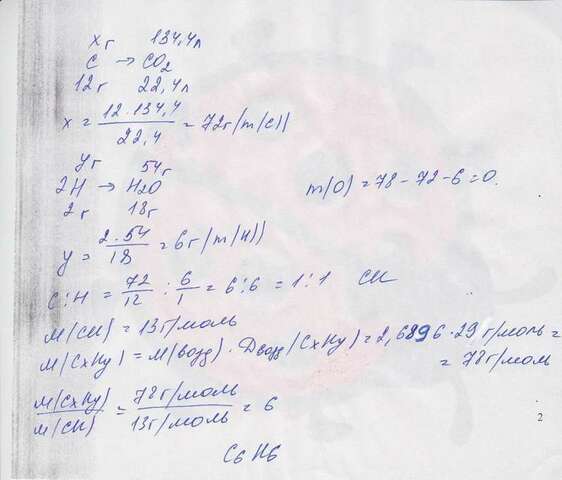 x г 134,4л
C → CO₂
12 г 22,4л
x = 12·134,4 / 22,4 = 72г (m(C))
y г 54г
2H → H₂O
2 г 18г
m(O) = 78 - 72 - 6 = 0.
y = 2·54 / 18 = 6г (m(H))
C:H = 72/12 : 6/1 = 6:6 = 1:1 CH
M(CH) = 13г/моль
M(CxHy) = M(возд) · Dвозд(CxHy) = 2,6896·29 г/моль =
= 78г/моль
M(CxHy) / M(CH) = 78г/моль / 13г/моль = 6
2
C₆H₆